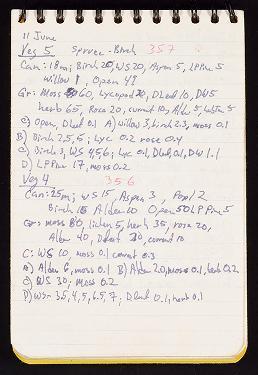 11 June
Veg 5 Spruce-Birch 357
Can: 18m; Birch 20, WS 20, Aspen 5, LPPine 5
Willow 1, Open 48
Gr: Moss 60, Lycopod 20, Dead 10, DW 5
herb 65, Rosa 20, currant 10, Alder 5, lichen 5
C) Open, Dead 0.1 A) willow 3, birch 2.3, moss 0.1
B) Birch 2,5,6; Lyc 0.2 rose 0.4
C) Birch 3, WS 4,5,6; Lyc 0.1, Dead 0.1, DW 1.1
D) LPPine 17, moss 0.2
Veg 4 356
Can: 25m; WS 15, Aspen 3, Popl 2
Birch 15 Alder 10 Open 50 LPPine 5
Gr: moss 80, lichen 5, herb 35, rosa 20,
Alder 40, Dead 20, currant 10
C: WS 10, moss 0.1 currant 0.3
A) Alder 6, moss 0.1 B) Alder 20, moss 0.1, herb 0.2
C) WS 30; moss 0.2
D) WS 3.5, 4, 5, 6.5, 7; Dead 0.1, herb 0.1